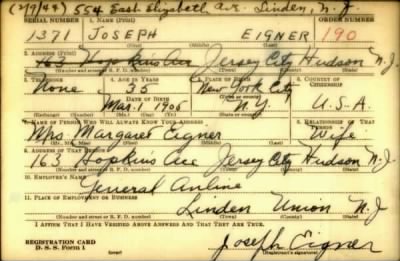 (2/9/44) 554 East Elizabeth Ave. Linden, N. J.
SERIAL NUMBER 1. NAME (Print) ORDER NUMBER
1371 JOSEPH EIGNER 190
(First) (Middle) (Last)
2. ADDRESS (Print)
163 Hopkins Ave Jersey City Hudson N.J.
(Number and street or R. F. D. number) (Town) (County) (State)
3. TELEPHONE 4. AGE IN YEARS 5. PLACE OF BIRTH 6. COUNTRY OF CITIZENSHIP
None 35 New York City
DATE OF BIRTH
Mar. 1 1905 N.Y. U.S.A.
(Mo.) (Day) (Yr.) (State or country)
7. NAME OF PERSON WHO WILL ALWAYS KNOW YOUR ADDRESS 8. RELATIONSHIP OF THAT PERSON
Mrs Margaret Eigner Wife
(Mr., Mrs., Miss) (First) (Middle) (Last)
9. ADDRESS OF THAT PERSON
163 Hopkins Ave Jersey City Hudson N.J.
(Number and street or R. F. D. number) (Town) (County) (State)
10. EMPLOYER'S NAME
General Aniline
11. PLACE OF EMPLOYMENT OR BUSINESS
Linden Union N.J.
(Number and street or R. F. D. number) (Town) (County) (State)
I AFFIRM THAT I HAVE VERIFIED ABOVE ANSWERS AND THAT THEY ARE TRUE.
REGISTRATION CARD
D. S. S. Form 1
Joseph Eigner
(Registrant's signature)